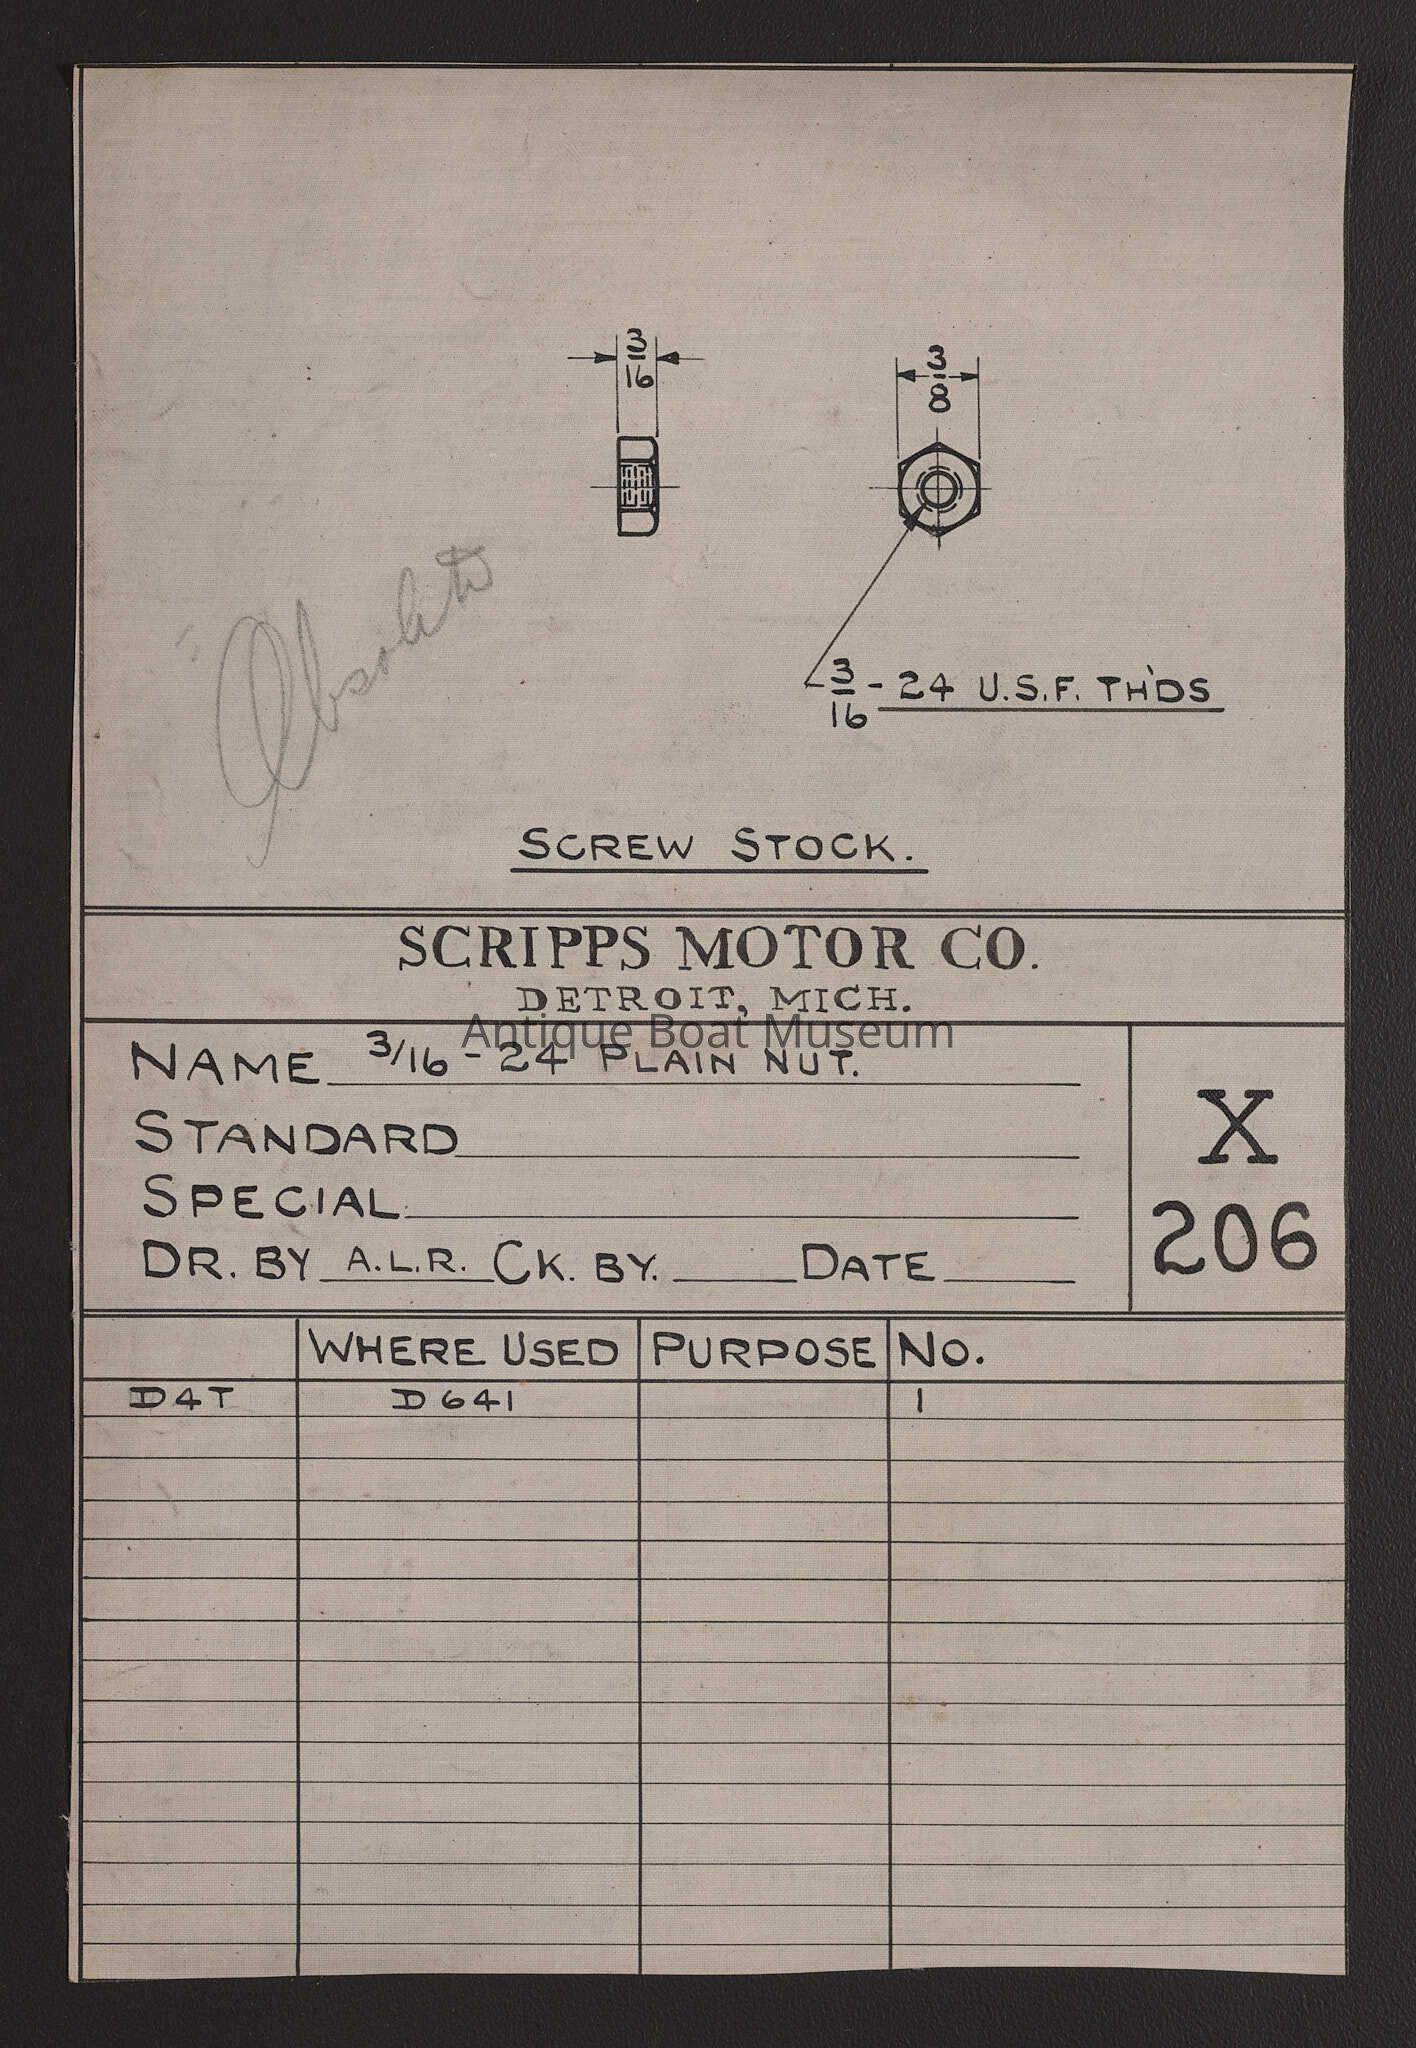 3/16
3/8
Obsolete
3/16 - 24 U.S.F. TH'DS
SCREW STOCK.
SCRIPPS MOTOR CO.
DETROIT, MICH.
Antique Boat Museum
NAME 3/16 - 24 PLAIN NUT.
STANDARD
SPECIAL
X
206
DR. BY A.L.R. CK. BY. DATE
WHERE USED PURPOSE NO.
D4T D641 1